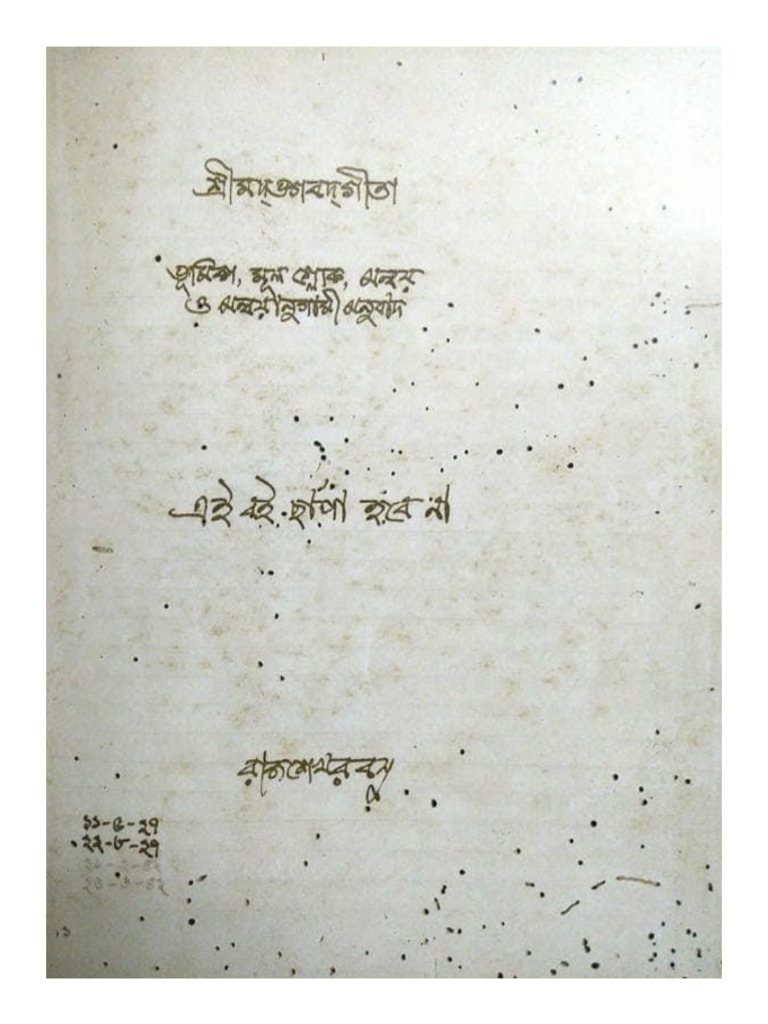 শ্রীমদ্‌ভগবদ্‌গীতা
ভূমিকা, মূল শ্লোক, অন্বয়
ও অন্বয়ানুগামী অনুবাদ
এই বই ছাপা হবে না
রাজশেখর বসু
২২-৮-২৭